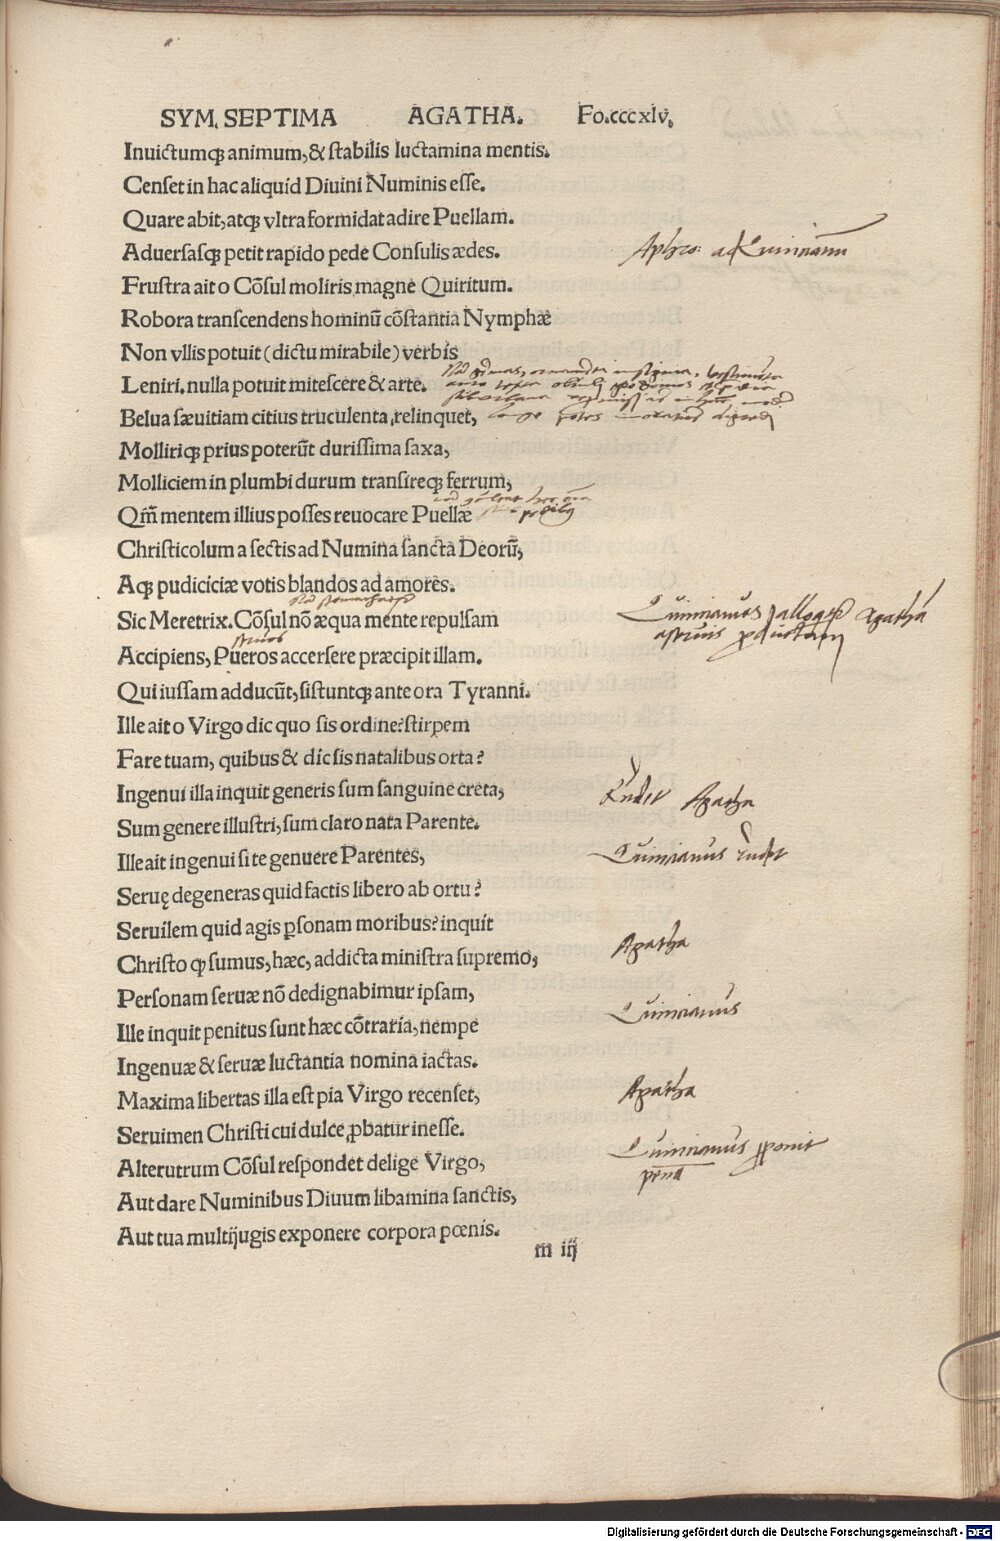 SYM. SEPTIMA AGATHA. Fo.cccxlv.
Inuictumqꝫ animum, & stabilis luctamina mentis.
Censet in hac aliquid Diuini Numinis esse.
Quare abit, atqꝫ vltra formidat adire Puellam.
Aduersasqꝫ petit rapido pede Consulis ædes.
Aphro: ad Quincianum
Frustra ait o Cõsul moliris magne Quiritum.
Robora transcendens hominũ cõstantia Nymphæ
Non vllis potuit (dictu mirabile) verbis
Leniri. nulla potuit mitescere & arte.
Belua sæuitiam citius truculenta relinquet,
Molliriqꝫ prius poterũt durissima saxa,
Molliciem in plumbi durum transireqꝫ ferrum,
Qm̃ mentem illius posses reuocare Puellæ
Christicolum a sectis ad Numina sancta Deorũ,
Aqꝫ pudiciciæ votis blandos ad amores.
Sic Meretrix. Cõsul nõ æqua mente repulsam
Quincianus alloqr̃ Agathã
astuiis productam
seruos
Accipiens, Pueros accersere præcipit illam.
Qui iussam adducũt, sistuntqꝫ ante ora Tyranni.
Ille ait o Virgo dic quo sis ordine? stirpem
Fare tuam, quibus & dic sis natalibus orta?
Ingenui illa inquit generis sum sanguine creta,
Rñdet Agatha
Sum genere illustri, sum claro nata Parente.
Ille ait ingenui si te genuere Parentes,
Quincianus
Seruę degeneras quid factis libero ab ortu?
Seruilem quid agis ꝑsonam moribus? inquit
Christo qꝫ sumus, hæc, addicta ministra supremo,
Agatha
Personam seruæ nõ dedignabimur ipsam,
Ille inquit penitus sunt hæc cõtraria, nempe
Quincianus
Ingenuæ & seruæ luctantia nomina iactas.
Maxima libertas illa est pia Virgo recenset,
Agatha
Seruimen Christi cui dulce ꝓbatur inesse.
Alterutrum Cõsul respondet delige Virgo,
Quincianus ꝓponit
penã
Aut dare Numinibus Diuum libamina sanctis,
Aut tua multijugis exponere corpora pœnis.
m iij
Digitalisierung gefördert durch die Deutsche Forschungsgemeinschaft - DFG